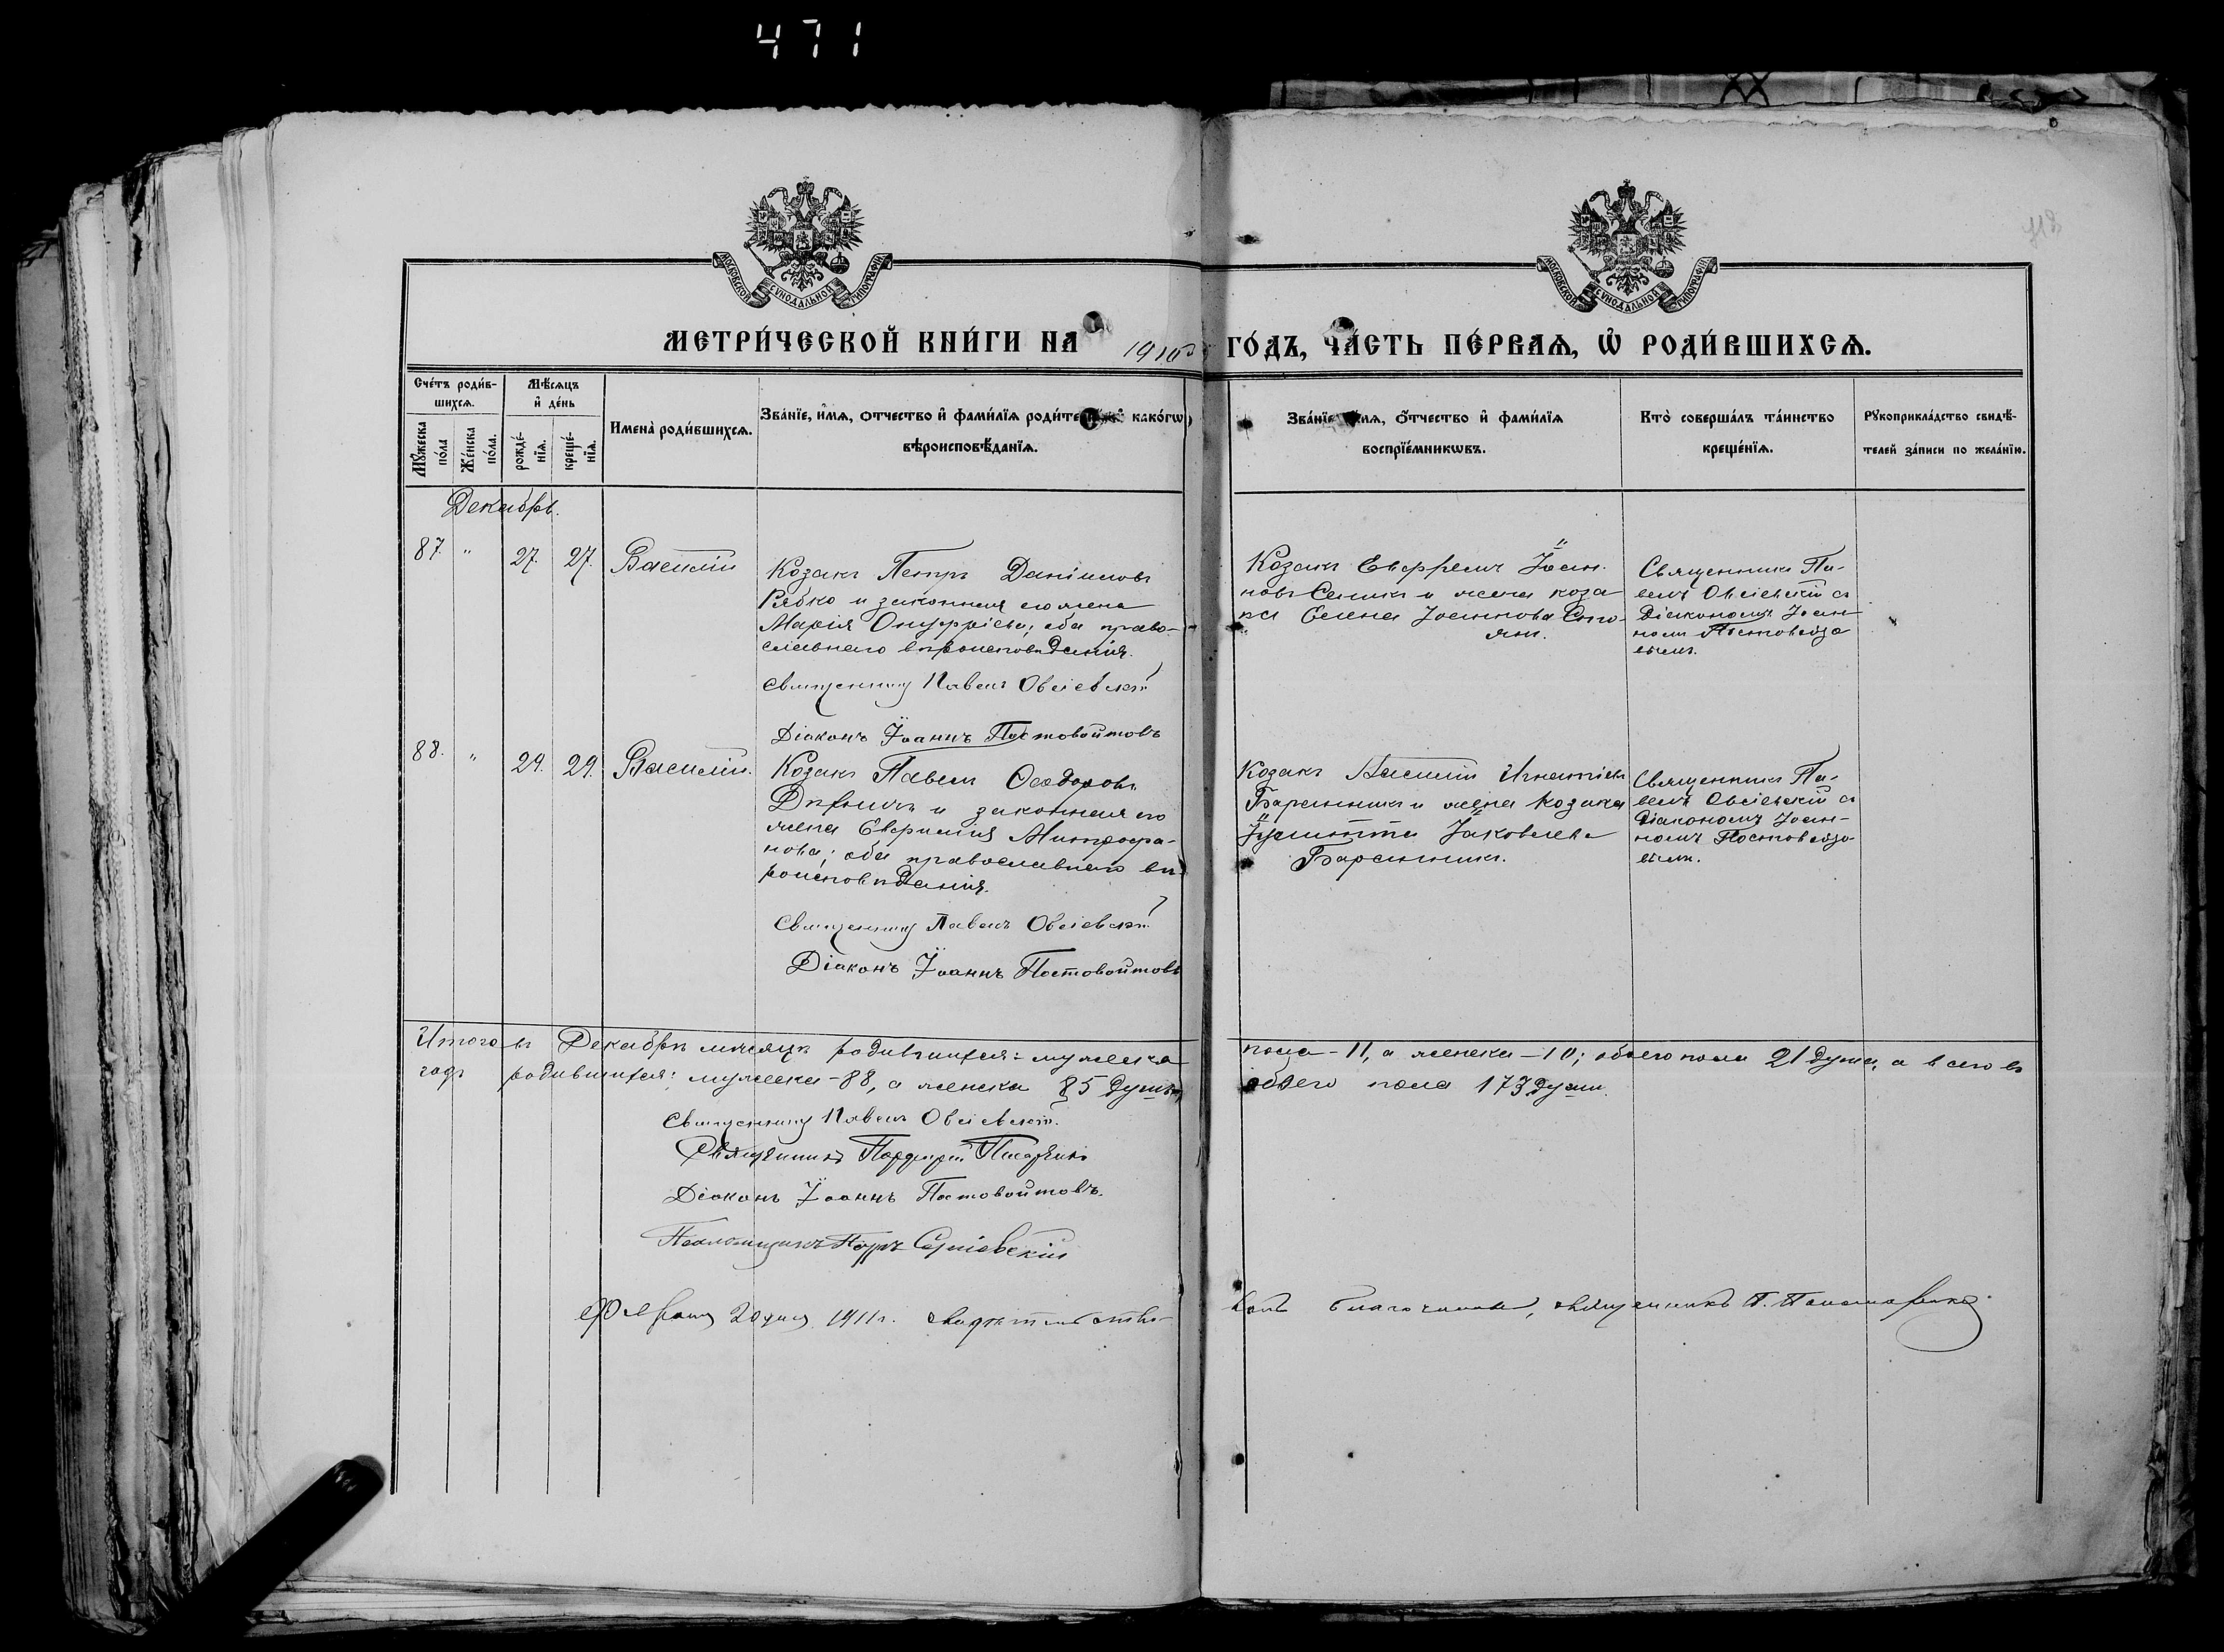 471
118
МОСКОВСКОЙ СУНОДАЛЬНОЙ ТИПОГРАФІИ
МОСКОВСКОЙ СУНОДАЛЬНОЙ ТИПОГРАФІИ
МЕТРИ́ЧЕСКОЙ КНИ́ГИ НА 1910й ГО́ДЪ, ЧА́СТЬ ПЕ́РВАѦ, Ѡ҆ РОДИ́ВШИХСѦ.
Сче́тъ роди́в-
шихсѧ.
Мꙋ́жеска по́ла
Же́нска по́ла.
Мѣ́сѧцъ
и҆ де́нь
рожде́-нїѧ.
креще́-нїѧ.
Имена̀ роди́вшихсѧ.
Зва́нїе, и҆́мѧ, ѻтчество и҆ фами́лїѧ роди́те како́гѡ
вѣроисповѣ́данїѧ.
Зва́нїе мѧ, ѻ҆́тчество и҆ фами́лїѧ
воспрїе́мникѡвъ.
Кто̀ соверша́лъ та́инство
креще́нїѧ.
Рꙋкоприкла́дство свидѣ́-
телей за́писи по жела́нїю.
Декабрь.
87. " 27. 27. Василій
Козакъ Петръ Даніиловъ
Рябко и законная его жена
Марія Онуфріева; оба право-
славнаго вѣроисповѣданія.
Священникъ Павелъ Овсіевскій
Діаконъ Іоаннъ Постовойтовъ
Козакъ Евфремъ Іоан-
новъ и жена коза
ка Елена Іоаннова Сто-
ян.
Священникъ Па-
велъ Овсіевскій съ
Діакономъ Іоан-
номъ Постовойто
вымъ.
88. " 29. 29. Василій.
Козакъ Павелъ Ѳеодоровъ
и законная его
жена Евфимія Митрофа-
нова; оба православнаго вѣ
роисповѣданія.
Священникъ Павелъ Овсіевскій
Діаконъ Іоаннъ Постовойтовъ
Козакъ Василій Игнатіевъ
Барсиникъ и жена козака
Іулитта Іаковлева
Барсиникъ.
Священникъ Па-
велъ Овсіевскій съ
Діакономъ Іоан-
номъ Постовойто
вымъ.
Итого въ Декабрѣ мѣсяцѣ родившихся: мужеска пола - 11, а женска - 10; обоего пола 21 душа, а всего въ
годъ родившихся: мужеска - 88, а женска 85 душъ, обоего пола 173 души.
Священникъ Павелъ Овсіевскій.
Священникъ Порфирій
Діаконъ Іоаннъ Постовойтовъ.
Псаломщикъ Петръ Сергіевскій
Февраля 20 дня 1911 г. свидѣтельство-
валъ благочинный, священникъ П. Пономаренко